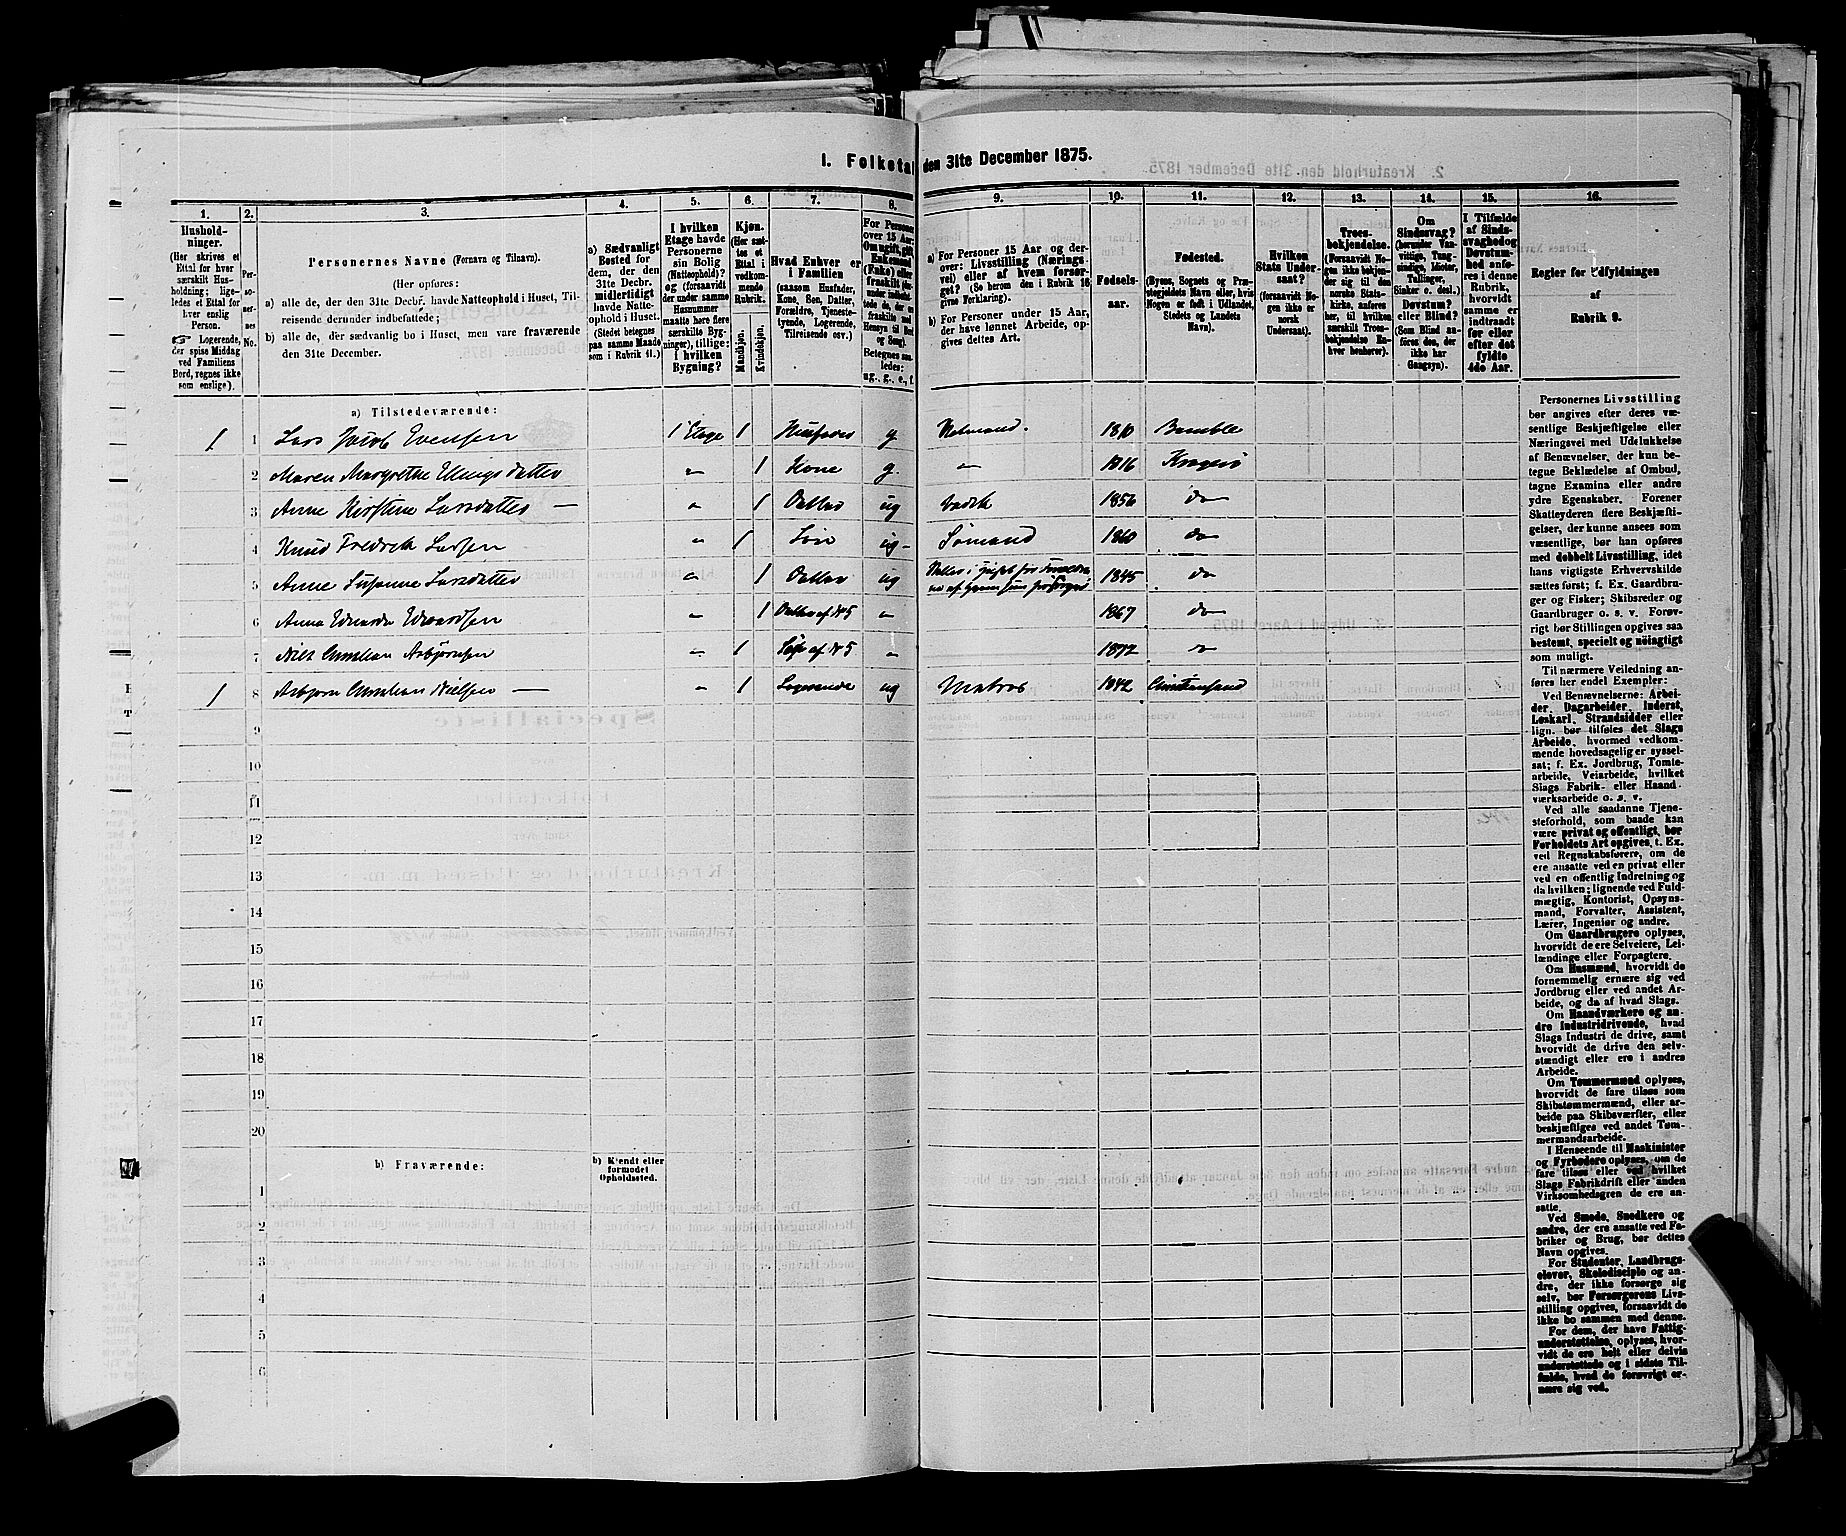 1. Folketal den 31te December 1875.
1. 2. 3. 4. 5. 6. 7. 8. 9. 10. 11. 12. 13. 14. 15. 16.
Hushold-
ninger.
(Her skrives et
Ettal for hver
særskilt Hus-
holdning; lige-
ledes et Ettal for
hver enslig
Person.
☞ Logerende,
der spise Middag
ved Familiens
Bord, regnes ikke
som enslige).
Per-
so-
ner-
nes
No.
Personernes Navne (Fornavn og Tilnavn).
(Her opføres:
a) alle de, der den 31te Decbr. havde Natteophold i Huset, Til-
reisende derunder indbefattede;
b) alle de, der sædvanlig bo i Huset, men vare fraværende
den 31te December.
a) Sædvanligt
Bosted for
dem, der den
31te Decbr.
midlertidigt
havde Natte-
ophold i Huset.
(Stedet betegnes
paa samme Maade
som i Rubrik 11.)
I hvilken
Etage havde
Personerne
sin Bolig
(Natteophold)?
og (forsaavidt
der under samme
Husnummer
maatte høre flere
særskilte Byg-
ninger), tillige:
i hvilken
Bygning?
Kjøn.
(Her sæt-
tes et
Ettal i
vedkom-
mende
Rubrik.
Mandkjøn.
Kvindekjøn.
Hvad Enhver er
i Familien
(saasom Husfader,
Kone, Søn, Datter,
Forældre, Tjeneste-
tyende, Logerende,
Tilreisende osv.)
For Personer
over 15 Aar:
Om ugift, gift,
Enkemand
(Enke) eller
fraskilt
ug., g., e., f.
a) For Personer 15 Aar og der-
over: Livsstilling (Nærings-
vei) eller af hvem forsør-
get? (Se herom den i Rubrik 16
givne Forklaring).
b) For Personer under 15 Aar,
der have lønnet Arbeide, op-
gives dettes Art.
Fødsels-
aar.
Fødested.
(Byens, Sognets og Præ-
stegjeldets Navn eller, hvis
Nogen er født i Udlandet,
Stedets og Landets
Navn).
Hvilken
Stats Under-
saat?
(forsaavidt No-
gen ikke er
norsk
Undersaat).
Troes-
bekjendelse.
(Forsaavidt No-
gen ikke bekjen-
der sig til den
norske Stats-
kirke, anføres
her, til hvilken
særskilt Troes-
bekjendelse En-
hver henhører).
Om
Sindssvag?
(herunder Van-
vittige, Tung-
sindige, Idioter,
Tullinger,
Sinker o. desl.)
Døvstum?
eller Blind?
(Som Blind an-
føres den, der
ikke har
Gangsyn).
I Tilfælde
af Sinds-
svaghed og
Døvstum-
hed anfø-
res i denne
Rubrik,
hvorvidt
samme er
indtraadt
før eller
efter det
fyldte
4de Aar.
Regler for Udfyldningen
af
Rubrik 9.
a) Tilstedeværende:
1 1 Lars Jacob Evensen 1 Etage 1 Husfader g 1810 Bamble
2 Maren Margrethe Ellingsdatter " 1 Kone g. " 1816 Kragerø
3 Anne Kirstine Larsdatter — " 1 Datter ug 1856 do
4 Knud Fredrik Larsen " 1 Søn ug Sømand 1860 do
5 Anne Susanne Larsdatter " 1 Datter ug 1845 do
6 Anna Edvarda Edvardsen " 1 Datter af No 5 " 1867 do
7 Niels Christian Asbjørnsen " 1 Søn af No 5 " 1872 do
1 8 Asbjørn Christian Nielsen — " 1 Logerende ug Matros 1842 Christiansand
9
10
11
12
13
14
15
16
17
18
19
20
b) Fraværende:
b) Kjendt eller
formodet
Opholdssted.
1
2
3
4
5
6
Personernes Livsstilling
bør angives efter deres væ-
sentlige Beskjæftigelse eller
Næringsvei med Udelukkelse
af Benævnelser, der kun be-
tegne Beklædelse af Ombud,
tagne Examina eller andre
ydre Egenskaber. Forener
Skatteyderen flere Beskjæfti-
gelser, der kunne ansees som
væsentlige, bør han opføres
med dobbelt Livsstilling, idet
hans vigtigste Erhvervskilde
sættes først; f. Ex. Gaardbru-
ger og Fisker; Skibsreder og
Gaardbruger o. s. v. Forøv-
rigt bør Stillingen opgives saa
bestemt, specielt og nøiagtigt
som muligt.
Til nærmere Veiledning an-
føres her endel Exempler:
Ved Benævnelserne: Arbei-
der, Dagarbeider, Inderst,
Løskarl, Strandsidder eller
lign. bør tilføies det Slags
Arbeide, hvormed vedkom-
mende hovedsagelig er syssel-
sat; f. Ex. Jordbrug, Tomte-
arbeide, Veiarbeide, hvilket
Slags Fabrik- eller Haand-
værksarbeide o. s. v.
Ved alle saadanne Tjene-
steforhold, som baade kan
være privat og offentligt, bør
Forholdets Art opgives, t. Ex.
ved Regnskabsførere, om de
ere ansatte ved en privat eller
ved en offentlig Indretning og
da hvilken; lignende ved Fuld-
mægtig, Kontorist, Opsyns-
mand, Forvalter, Assistent,
Lærer, Ingeniør og andre.
Om Gaardbrugere oplyses,
hvorvidt de ere Selveiere, Lei-
lændinge eller Forpagtere.
Om Husmænd, hvorvidt de
fornemmelig ernære sig ved
Jordbrug eller ved andet Ar-
beide, og da af hvad Slags.
Om Haandværkere og an-
dre Industridrivende, hvad
Slags Industri de drive, samt
hvorvidt de drive den selv-
stændigt eller ere i andres
Arbeide.
Om Tømmermænd oplyses,
hvorvidt de fare tilsøs som
Skibstømmermænd, eller ar-
beide paa Skibsværfter, eller
beskjæftiges ved andet Tøm-
mermandsarbeide.
I Henseende til Maskinister
og Fyrbødere oplyses, om de
fare tilsøs eller ved hvilket
Slags Fabrikdrift eller anden
Virksomhedsgren de ere an-
satte.
Ved Smede, Snedkere og
andre, der ere ansatte ved Fa-
briker og Brug, bør dettes
Navn opgives.
For Studenter, Landbrugs-
elever, Skoledisciple og an-
dre, der ikke forsørge sig
selv, bør Forsørgerens Livs-
stilling opgives, forsaavidt de
ikke bo sammen med denne.
For dem, der have Fattig-
understøttelse, oplyses, hvor-
vidt de ere helt eller delvis
understøttede og i sidste Til-
fælde, hvad de forøvrigt er-
nære sig ved.